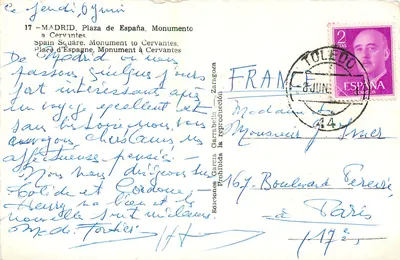 ce jeudi, 6 juin
17 - MADRID, Plaza de España, Monumento
a Cervantes.
Spain Square. Monument to Cervantes.
Place d'Espagne, Monument à Cervantes
De Madrid où nous
passons quelques jours
fort intéressant après
un voyage excellent et
sans histoire, nous vous
envoyons, chers amis, une
affectueuse pensée -
Nous nous dirigeons sur
Tolède et Cordoue,
Henry va bien et les
nouvelles sont
Ediciones García Garrabella - Zaragoza
Prohibida la reproducción
2
PTAS
CORREOS
ESPAÑA
TOLEDO
JUN
44
FRANCE
Madame
Monsieur
167. Boulevard Pereire
à Paris
(17è)